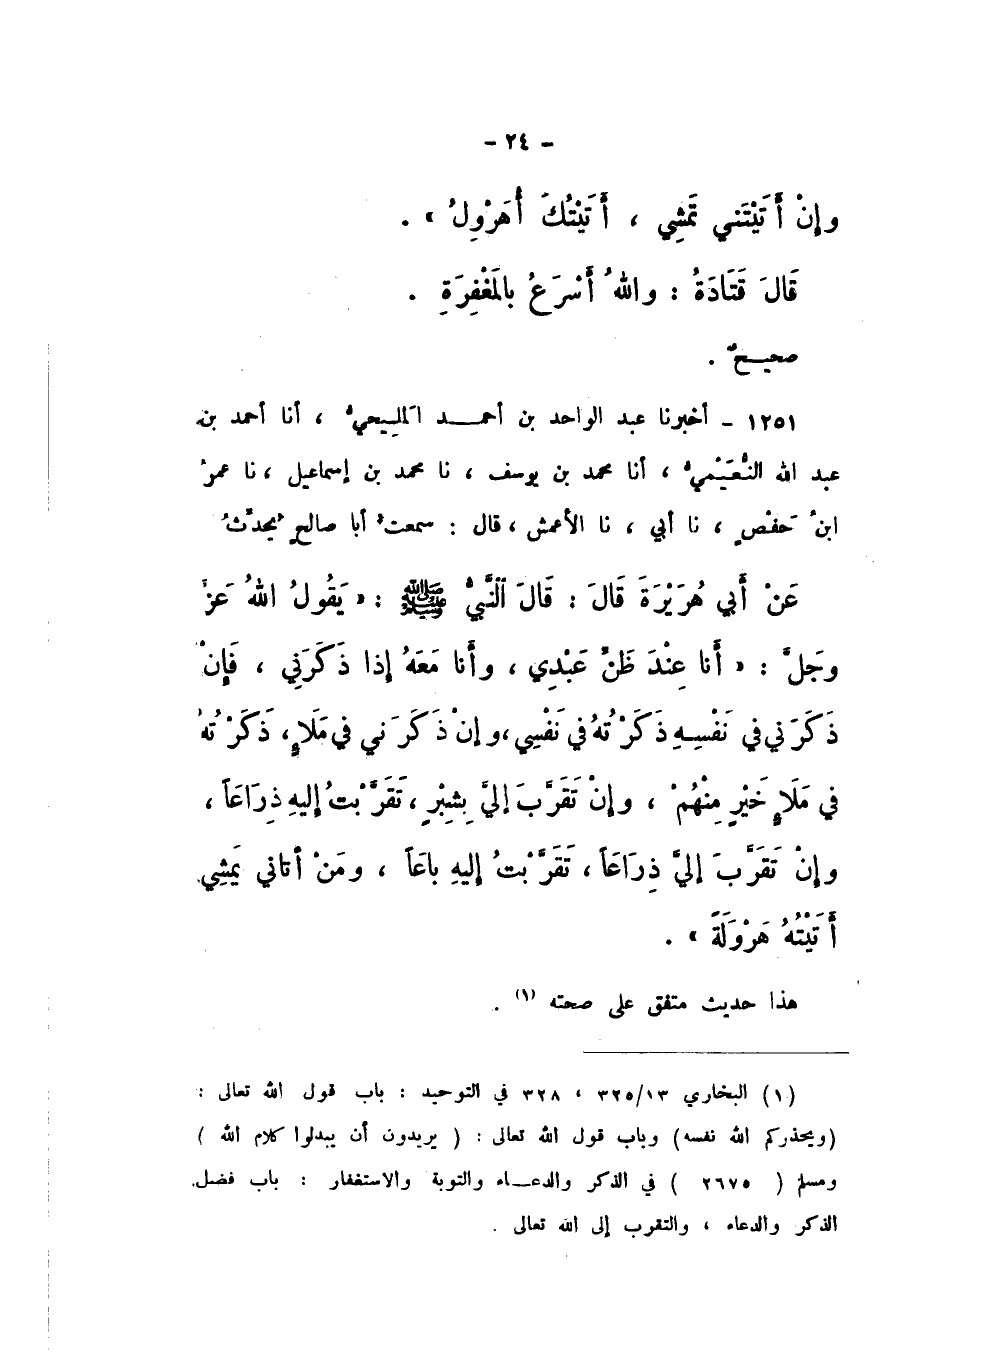 - ٢٤ -
وإنْ أَتَيْتَني تَمْشِي ، أَتَيْتُكَ أُهَرْوِلُ » .
قَالَ قَتَادَةُ : واللهُ أَسْرَعُ بالمَغْفِرَةِ .
صحيـحٌ .
١٢٥١ - أخبرنا عبد الواحد بن أحمـــد المَلِيحيُّ ، أنا أحمد بن
عبد الله النُّعَيْميُّ ، أنا محمد بن يوسف ، نا محمد بن إسماعيل ، نا عمرُ
ابنُ حَفْصٍ ، نا أبي ، نا الأعمش ، قال : سمعتُ أبا صالحٍ يُحدِّثُ
عَنْ أَبي هُرَيْرَةَ قَالَ : قَالَ النَّبيُّ ﷺ : « يَقُولُ اللهُ عَزَّ
وجَلَّ : « أَنا عِنْدَ ظَنِّ عَبْدِي ، وأَنا مَعَهُ إذا ذَكَرَنِي ، فَإِنْ
ذَكَرَني في نَفْسِهِ ذَكَرْتُهُ في نَفْسِي ، وإنْ ذَكَرَني في مَلَاءٍ ، ذَكَرْتُهُ
في مَلَاءٍ خَيْرٍ مِنْهُمْ ، وإنْ تَقَرَّبَ إليَّ بِشِبْرٍ ، تَقَرَّبْتُ إليهِ ذِرَاعَاً ،
وإنْ تَقَرَّبَ إليَّ ذِرَاعَاً ، تَقَرَّبْتُ إليهِ باعَاً ، ومَنْ أتاني يَمْشِي
أَتَيْتُهُ هَرْوَلَةً » .
هذا حديث متفق على صحته (١) .
(١) البخاري ٣٢٥/١٣ ، ٣٢٨ في التوحيد : باب قول الله تعالى :
(ويحذركم الله نفسه) وباب قول الله تعالى : ( يريدون أن يبدلوا كلام الله )
ومسلم ( ٢٦٧٥ ) في الذكر والدعـــاء والتوبة والاستغفار : باب فضل
الذكر والدعاء ، والتقرب إلى الله تعالى .